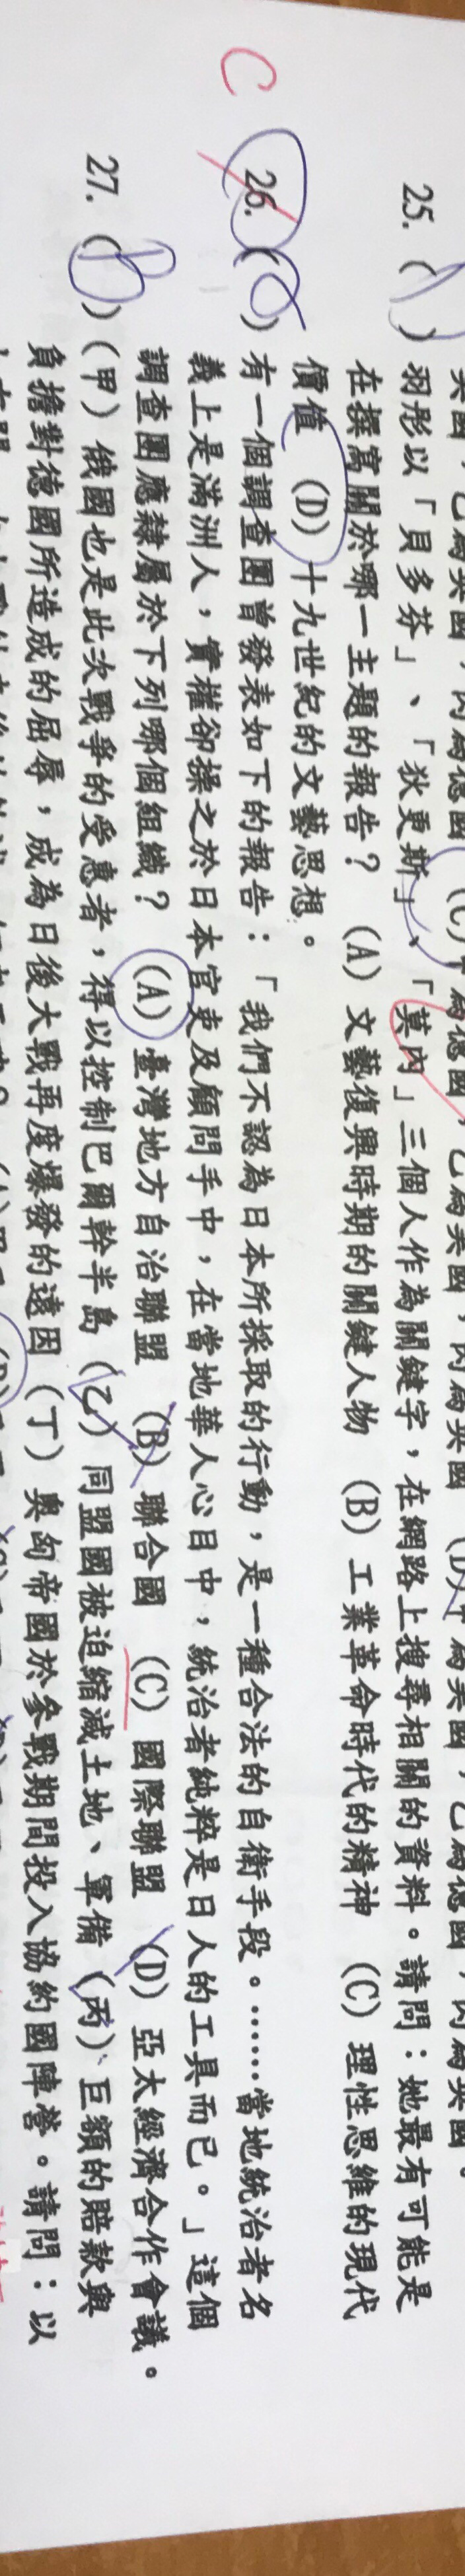 英國，乙為美國，丙為德國 (C)甲為德國，乙為美國，丙為英國 (D)甲為美國，乙為德國，丙為英國。
25. ( ) 羽彤以「貝多芬」、「狄更斯」、「莫內」三個人作為關鍵字，在網路上搜尋相關的資料。請問：她最有可能是
在撰寫關於哪一主題的報告？ (A) 文藝復興時期的關鍵人物 (B) 工業革命時代的精神 (C) 理性思維的現代
價值 (D) 十九世紀的文藝思想。
C
26. ( ) 有一個調查團曾發表如下的報告：「我們不認為日本所採取的行動，是一種合法的自衛手段。……當地統治者名
義上是滿洲人，實權卻操之於日本官吏及顧問手中，在當地華人心目中，統治者純粹是日人的工具而已。」這個
調查團應隸屬於下列哪個組織？ (A) 臺灣地方自治聯盟 (B) 聯合國 (C) 國際聯盟 (D) 亞太經濟合作會議。
27. (B) (甲) 俄國也是此次戰爭的受惠者，得以控制巴爾幹半島 (乙) 同盟國被迫縮減土地、軍備 (丙) 巨額的賠款與
負擔對德國所造成的屈辱，成為日後大戰再度爆發的遠因 (丁) 奧匈帝國於參戰期間投入協約國陣營。請問：以